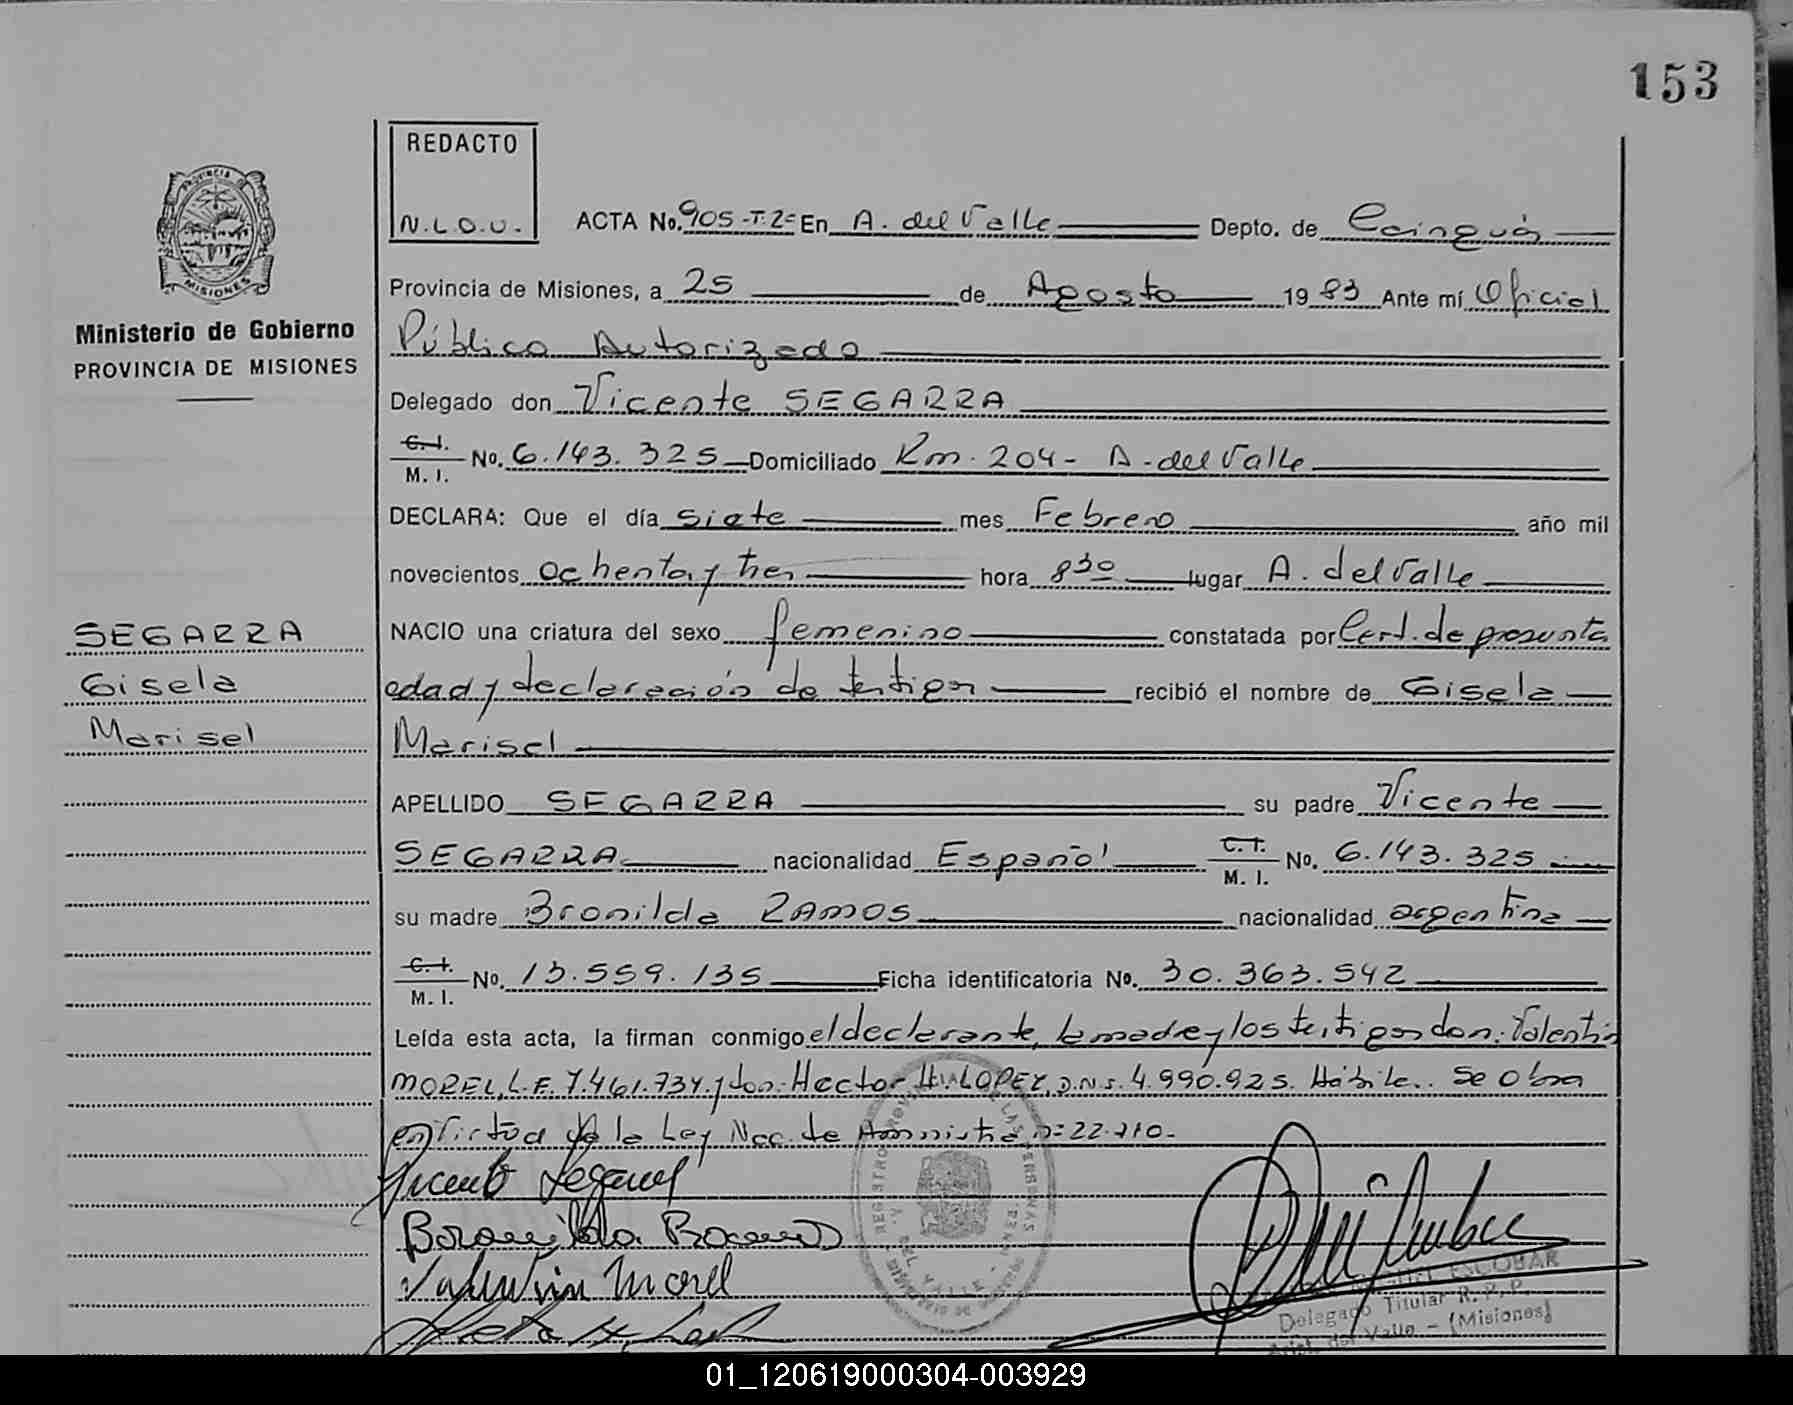 153
REDACTO
N.L.O.U.
ACTA No. 905-T.2= En A. del Valle Depto. de Cainguás
PROVINCIA DE
MISIONES
Provincia de Misiones, a 25 de Agosto 1983 Ante mí Oficial
Ministerio de Gobierno
PROVINCIA DE MISIONES
Público Autorizado
Delegado don Vicente SEGARRA
C. I.
M. I. No. 6.143.325 Domiciliado Km. 204 - A. del Valle
DECLARA: Que el día siete mes Febrero año mil
novecientos ochenta y tres hora 8 30 lugar A. del Valle
SEGARRA
Gisela
Marisel
NACIO una criatura del sexo femenino constatada por Cert. de presunta
edad y declaración de testigos recibió el nombre de Gisela
Marisel
APELLIDO SEGARRA su padre Vicente
SEGARRA nacionalidad Español C. I. M. I. No. 6.143.325
su madre Bronilda RAMOS nacionalidad argentina
C. I.
M. I. No. 13.559.135 Ficha identificatoria No. 30.363.542
Leída esta acta, la firman conmigo el declarante, la madre y los testigos don: Valentin
MOREL, L.E. 7.461.734 y don: Hector H. LOPEZ, D.N.I. 4.990.925. Hábile.. Se obra
en Virtud de la Ley Nac. de Amnistia nº 22.710.-
Vicente Segarra
Bronilda Ramos
Valentin Morel
ESCOBAR
Delegado Titular R. P. P.
Arist. del Valle - (Misiones)
01_120619000304-003929